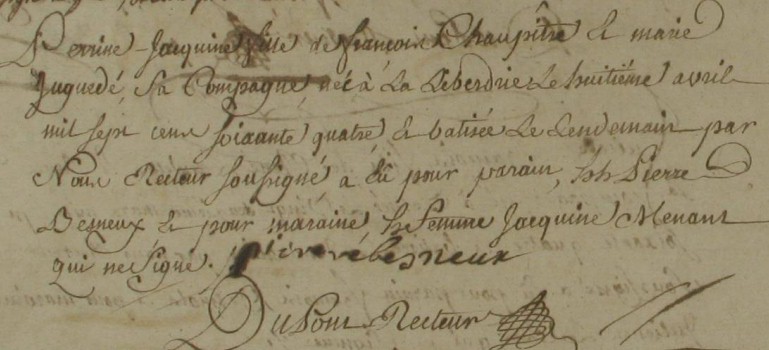 Perrine Jacquine fille de françois Chaupitre & marie
Juguedé, sa Compagne, née à La Liberdrie Le huitiéme avril
mil sept cens soixante quatre & batisée Le Lendemain par
Nous Recteur soussigné, a Eû pour parain, h.h Pierre
Besneux & pour maraine, h. femme Jacquine Menant
qui ne signe. pierre besneux
DuPont Recteur